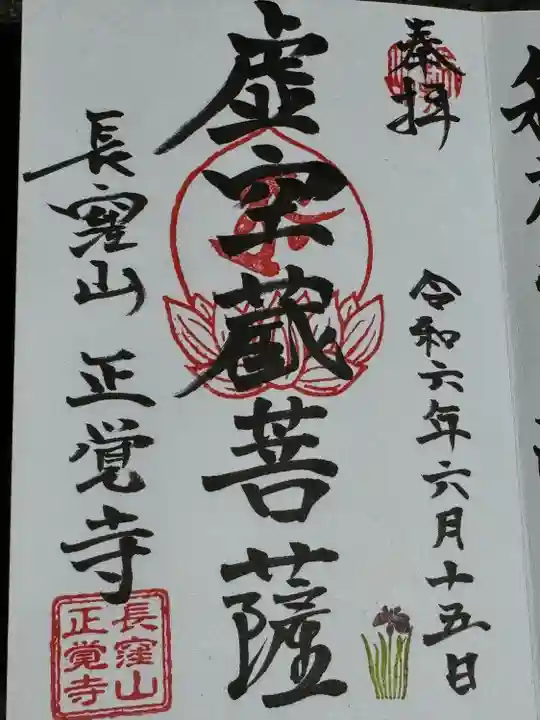 奉拝
令和六年六月十五日
虚空蔵菩薩
長窪山 正覚寺
長窪山
正覚寺